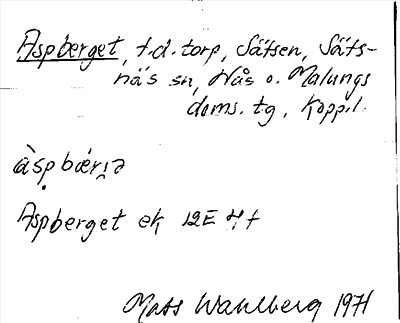 Aspberget, f.d. torp, Sätsen, Säfs-
näs sn, Nås o. Malungs
doms. tg, Koppl.
àspbæ̀rjə
Aspberget ek 12E 4f
Mats Wahlberg 1971